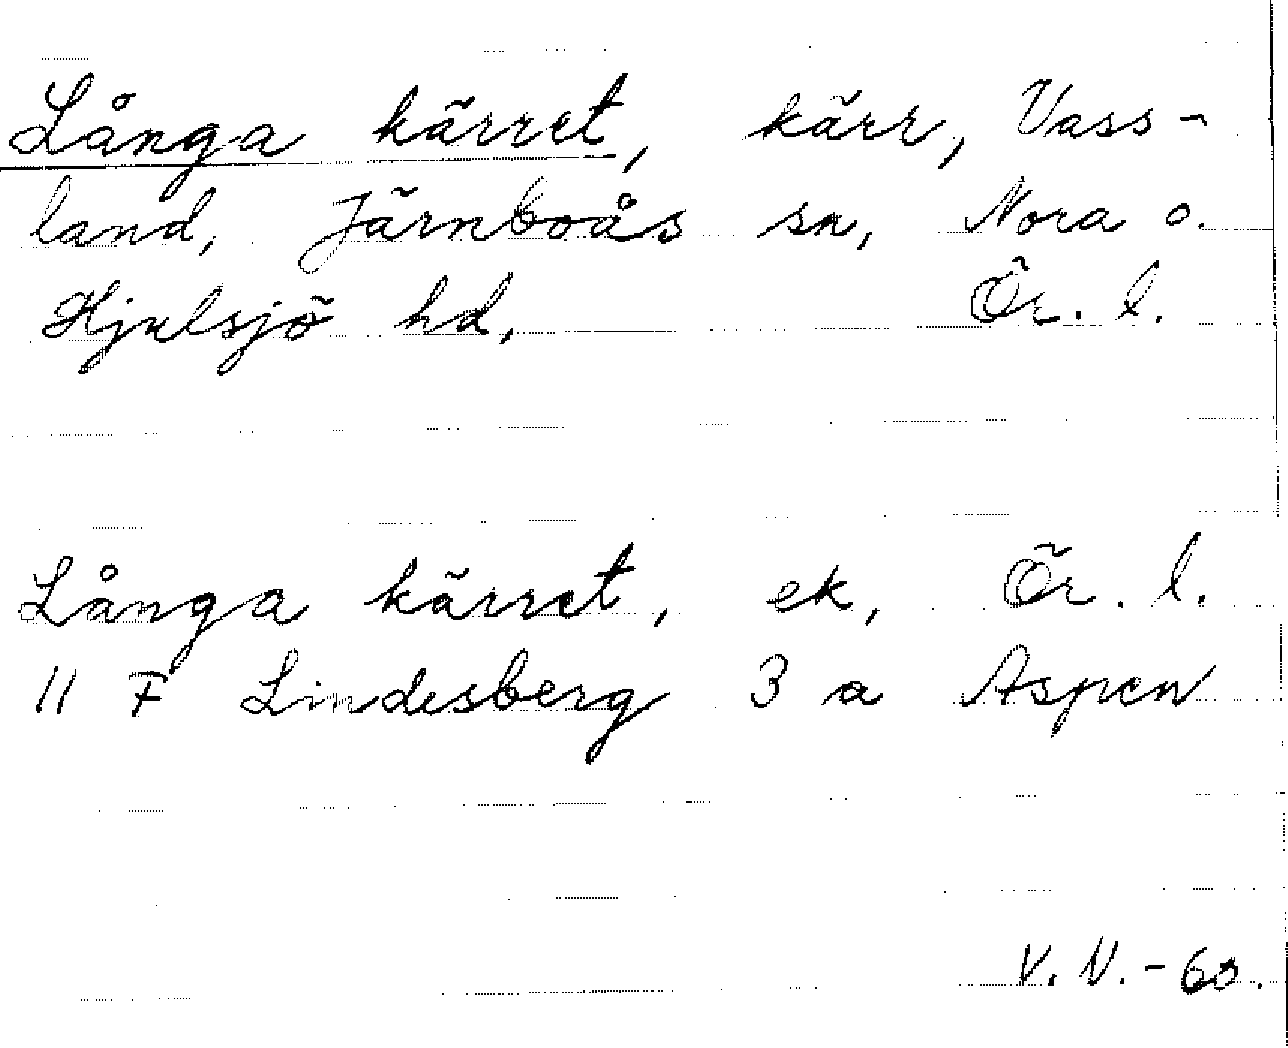 Långa kärret, kärr, Vass-
land, Järnboås sn, Nora o.
Hjulsjö hd, Ör. l.
Långa kärret, ek, Ör. l.
11 F Lindesberg 3 a Aspen
V. N. - 63.